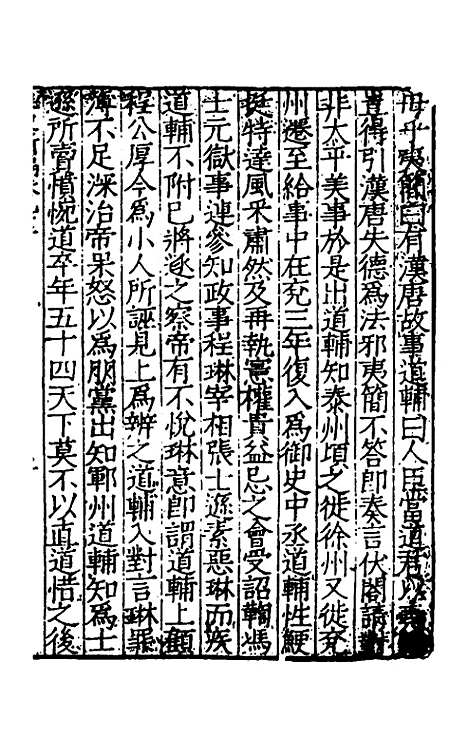 母乎夷簡曰有漢唐故事道輔曰人臣當道君以
豈得引漢唐失德為法邪夷簡不答即奏言伏閤請對
非太平美事於是出道輔知泰州頃之徙徐州又徙兗
州遷至給事中在兗三年復入為御史中丞道輔性鯁
挺特達風采肅然及再執憲權貴益忌之會受詔鞫馮
士元獄事連參知政事程琳宰相張士遜素惡琳而疾
道輔不附已將逐之察帝有不悅琳意即謂道輔上顧
程公厚今為小人所誣見上為辨之道輔入對言琳罪
薄不足深治帝果怒以為朋黨出知鄆州道輔知為士
遜所賣憤惋道卒年五十四天下莫不以直道惜之後